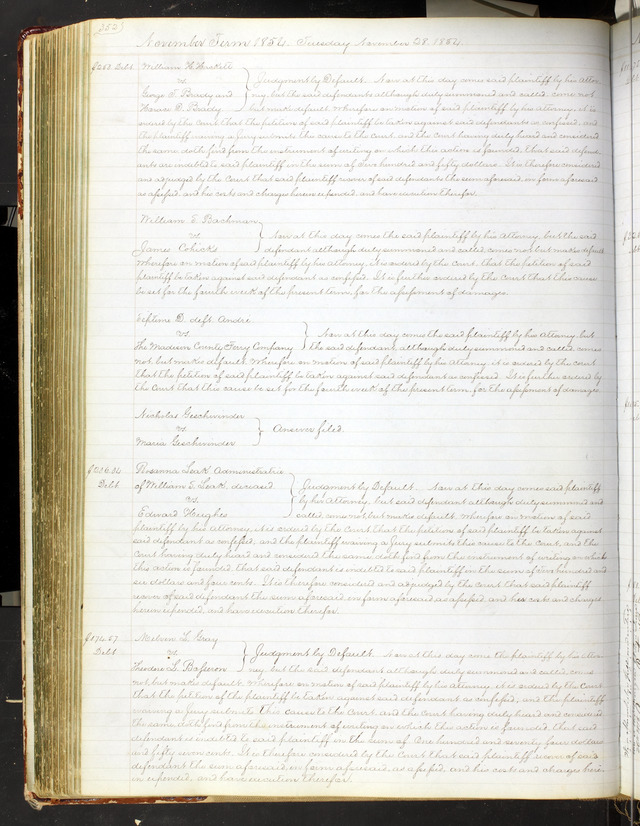 252
November Term 1854. Tuesday November 28. 1854.
$250 Debt William H. 
vs. Judgment by Default. Now at this day comes said plaintiff by his Attor-
George T. Brady and ney, but the said defendants although duly summoned and called, come not
Horace R. Brady but make default. Wherefore on motion of said plaintiff by his Attorney, it is
ordered by the Court that the petition of said plaintiff be taken against said defendants as confessed, and
the plaintiff waiving a Jury submits the cause to the Court and the Court having duly heard and considered
the same doth find from the instrument of writing on which this action is founded, that said defend-
ants are indebted to said plaintiff in the sum of two hundred and fifty dollars. It is therefore considered
and adjudged by the Court that said plaintiff recover of said defendants the sum aforesaid, in form aforesaid
as assessed, and his costs and charges herein expended, and have execution therefor.
William E. Bachman
vs. Now at this day comes the said plaintiff by his Attorney, but the said
James defendant although duly summoned and called, comes not but makes default
Wherefore on motion of said plaintiff by his attorney, it is ordered by the Court, that the petition of said
plaintiff be taken against said defendant as confessed. It is further ordered by the Court that this cause
be set for the fourth week of the present term, for the assessment of damages.
D. dest. Andre
vs. Now at this day comes the said plaintiff by his Attorney, but
The Madison County Ferry Company the said defendant, although duly summoned and called comes
not, but makes default. Wherefore on motion of said plaintiff by his Attorney it is ordered by the Court
that the petition of said plaintiff be taken against said defendant as confessed. It is further ordered by
the Court that this cause be set for the fourth week of the present term, for the assessment of damages
Nicholas Geschwinder
vs. Answer filed.
Maria Geschwinder
$206.04 Rosanna Leak Administratrix
Debt of William T. Leak, deceased Judgment by Default. Now at this day comes said plaintiff
vs. by his Attorney, but said defendant although duly summoned and
Edward Hughes called, comes not, but makes default. Wherefore on motion of said
plaintiff by his Attorney, it is ordered by the Court that the petition of said plaintiff be taken against
said defendant as confessed, and the plaintiff waiving a Jury submits this cause to the Court, and the
Court having duly heard and considered the same doth find from the instrument of writing on which
this action is founded, that said defendant is indebted to said plaintiff in the sum of two hundred and
six dollars and four cents. It is therefore considered and adjudged by the Court that said plaintiff
recover of said defendant the sum aforesaid in form aforesaid as assessed, and her costs and charges
herein expended, and have execution therefor.
$174.57 Melvin L. Gray
Debt vs. Judgment by Default. Now at this day come the plaintiff by his Attor-
Theodore L. ney but the said defendant although duly summoned and called, comes
not, but makes default. Wherefore on motion of said plaintiff by his attorney, it is ordered by the Court
that the petition of the plaintiff be taken against said defendant as confessed, and the plaintiff
waiving a Jury submits this cause to the Court, and the Court having duly heard and considered
the same doth find from the instrument of writing on which this action is founded, that said
defendant is indebted to said plaintiff in the sum of One hundred and seventy four dollars
and fifty seven cents. It is therefore considered by the Court that said plaintiff recover of said
defendant the sum aforesaid in form aforesaid, as assessed, and his costs and charges here-
in expended, and have execution therefor.